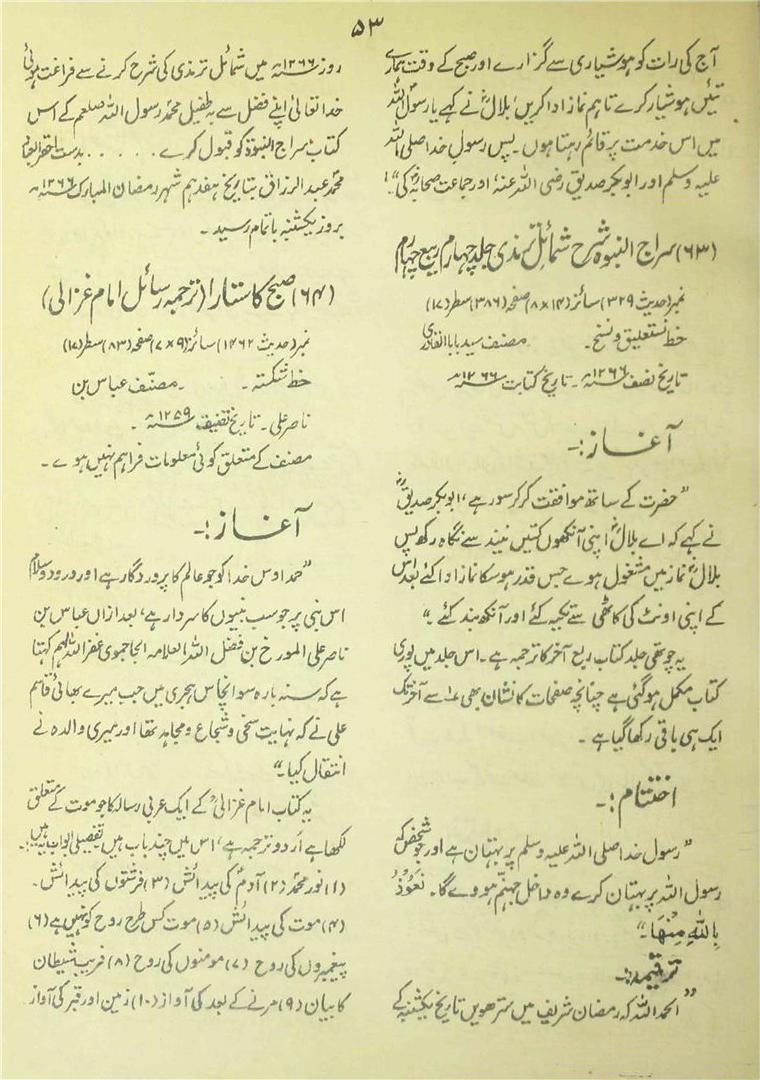 ۵۳
آج کی رات کو ہوشیاری سے گزارے اور صبح کے وقت ہمارے
تئیں ہوشیار کرے تا ہم نماز ادا کریں بلالؓ نے کہے یا رسول اللہ
میں اس خدمت پر قائم رہتا ہوں۔ پس رسول خدا صلی اللہ
علیہ وسلم اور ابوبکر صدیق رضی اللہ عنہٗ اور جماعت صحابہؓ کی"!
(۶۳) سراج النبوہ شرح شمائل ترمذی جلد چہارم ربیع چہارم
نمبر (حدیث ۳۲۹) سائز (۱۴×۸) صفحہ (۳۸۶) سطر (۱۷)
خط نستعلیق و نسخ۔ مصنف سید بابا القادری
تاریخ تصنیف ۱۲۶۶ھ۔ تاریخ کتابت ۱۲۶۶ھ
آغاز:۔
"حضرت کے ساتھ موافقت کر کر سو رہے، ابوبکر صدیقؓ
نے کہے کہ اے بلالؓ اپنی آنکھوں کتیں نیند سے نگاہ رکھ پس
بلالؓ نماز میں مشغول ہوے جس قدر ہو سکا نماز ادا کئے بعد اس
کے اپنی اونٹ کی کاٹھی سے تکیہ کئے اور آنکھ بند کئے۔"
یہ چوتھی جلد کتاب ربع آخر کا ترجمہ ہے۔ اس جلد میں پوری
کتاب مکمل ہو گئی ہے چنانچہ صفحات کا نشان بھی ۱ سے آخر تک
ایک ہی باقی رکھا گیا ہے۔
اختتام:۔
"رسول خدا صلی اللہ علیہ وسلم پر بہتان ہے اور جو شخص کہ
رسول اللہ پر بہتان کرے وہ داخل جہنم ہووے گا۔ نَعُوْذُ
بِاللّٰہِ مِنْھَا۔"
ترقیمہ:۔
"الحمد اللہ کہ رمضان شریف میں سترھویں تاریخ یکشنبہ کے
روز ۱۲۶۶ھ میں شمائل ترمذی کی شرح کرنے سے فراغت ہوئی
خدا تعالیٰ اپنے فضل سے بہ طفیل محمد رسول اللہ صلعم کے اس
کتاب سراج النبوۃ کو قبول کرے ..... بدست احقر العباد
محمد عبد الرزاق بتاریخ ہفدہم شہر رمضان المبارک ۱۲۶۶ھ
بروز یکشنبہ باتمام رسید۔
(۶۴) صبح کا ستارا (ترجمہ رسائل امام غزالی)
نمبر (حدیث ۱۴۶۲) سائز (۹×۷) صفحہ (۸۳) سطر (۱۷)
خط شکستہ۔ ۔مصنف عباس بن
ناصر علی۔ تاریخ تصنیف ۱۲۵۹ھ۔
مصنف کے متعلق کوئی معلومات فراہم نہیں ہوے۔
آغاز:۔
"حمد اوس خدا کو جو عالم کا پروردگار ہے اور درود و سلام
اس نبی پر جو سب نبیوں کا سردار ہے، بعد ازاں عباس بن
ناصر علی المورخ بن فضل اللہ العلامہ الجاجموی غفر اللہ لہم کہتا
ہے کہ سنہ بارہ سو انچاس ہجری میں جب میرے بھائی قاسم
علی نے کہ نہایت سخی و شجاع و مجاہد تھا اور میری والدہ نے
انتقال کیا۔"
یہ کتاب امام غزالیؒ کے ایک عربی رسالہ کا جو موت کے متعلق
لکھا ہے اردو ترجمہ ہے، اس میں چند باب ہیں تفصیل ابواب یہ ہیں:۔
(۱) نور محمدؐ (۲) آدمؑ کی پیدائش (۳) فرشتوں کی پیدائش۔
(۴) موت کی پیدائش (۵) موت کس طرح روح کو لیتی ہے (۶)
پیغمبروں کی روح (۷) مومنوں کی روح (۸) فریب شیطان
کا بیان (۹) مرنے کے بعد کی آواز (۱۰) زمین اور قبر کی آواز